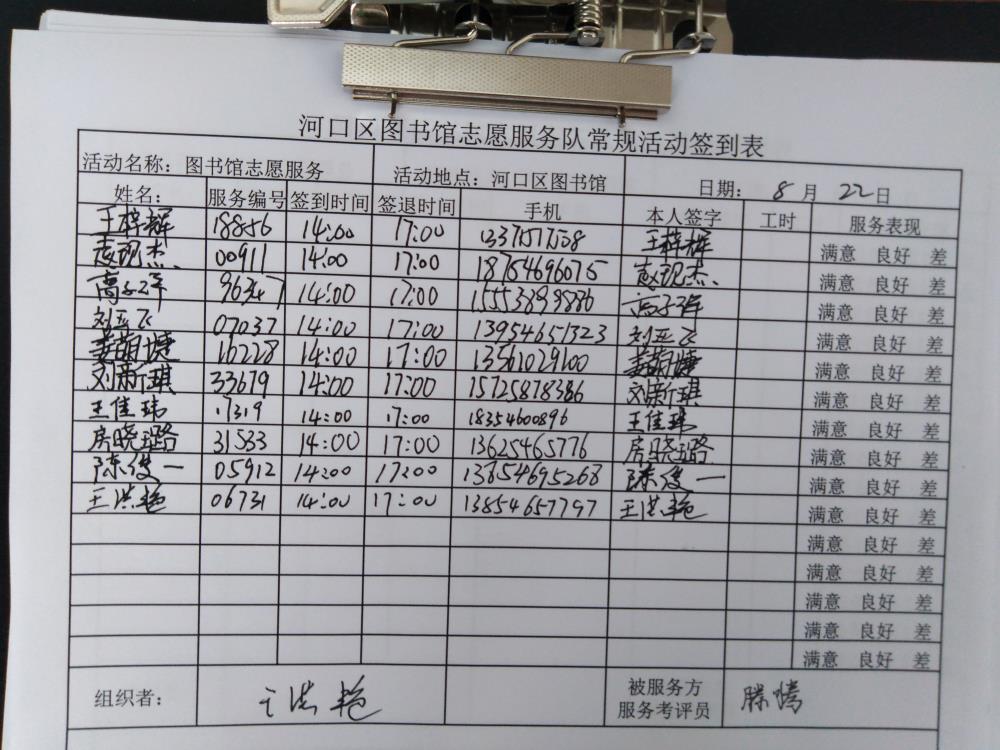 河口区图书馆志愿服务队常规活动签到表
活动名称：图书馆志愿服务 活动地点：河口区图书馆 日期： 8 月 22 日
姓名： 服务编号 签到时间 签退时间 手机 本人签字 工时 服务表现
王梓辉 18856 14:00 17:00 王梓辉 满意 良好 差
袁现杰 00911 14:00 17:00 18754696075 袁现杰 满意 良好 差
高子洋 96347 14:00 17:00 15553899886 高子洋 满意 良好 差
刘亚飞 07037 14:00 17:00 13954651323 刘亚飞 满意 良好 差
16228 14:00 17:00 13561029100 满意 良好 差
刘新琪 33679 14:00 17:00 15725878386 刘新琪 满意 良好 差
王佳玮 17319 14:00 17:00 18354600896 王佳玮 满意 良好 差
房晓璐 31533 14:00 17:00 13625465776 房晓璐 满意 良好 差
陈俊一 05912 14:00 17:00 13854695268 陈俊一 满意 良好 差
王洪艳 06731 14:00 17:00 13854657797 王洪艳 满意 良好 差
满意 良好 差
满意 良好 差
满意 良好 差
满意 良好 差
满意 良好 差
组织者： 王洪艳 被服务方 滕腾
服务考评员